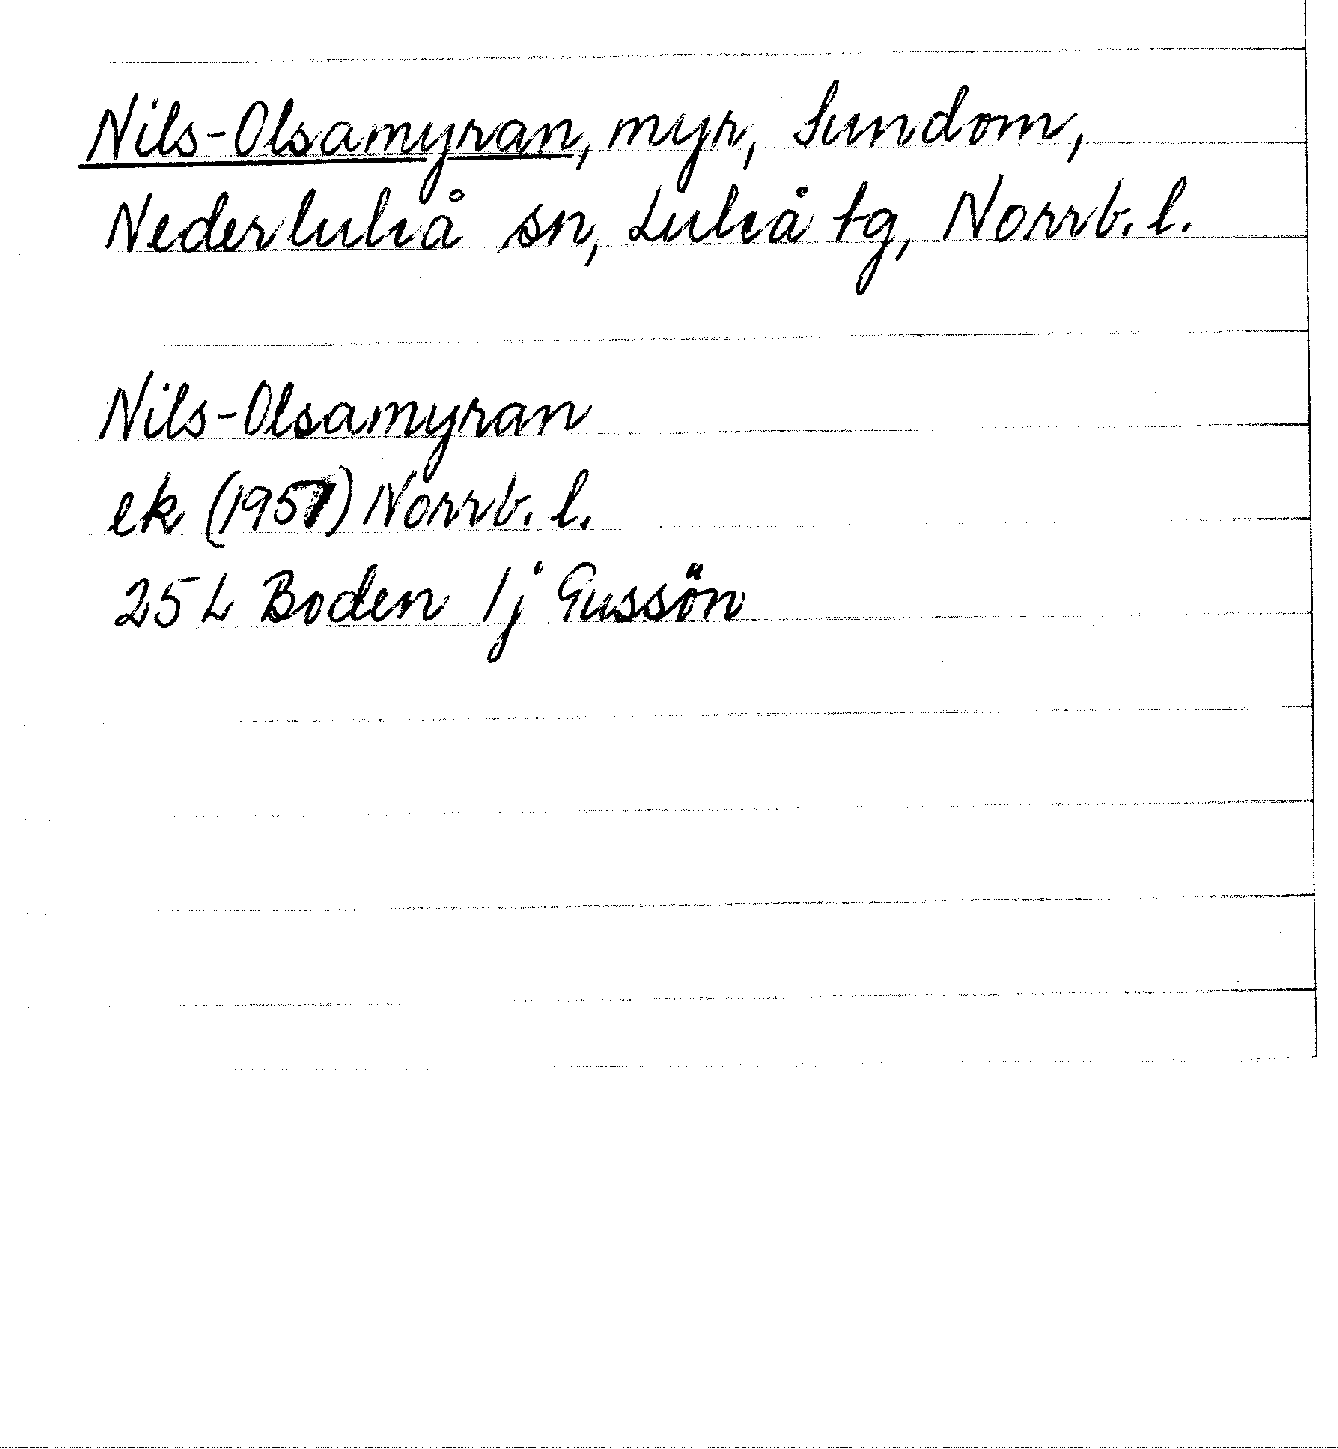 Nils-Olsamyran, myr, Sundom,
Nederluleå sn, Luleå tg, Norrb. l.
Nils-Olsamyran
ek (1951) Norrb. l.
25 L Boden 1j Gussön